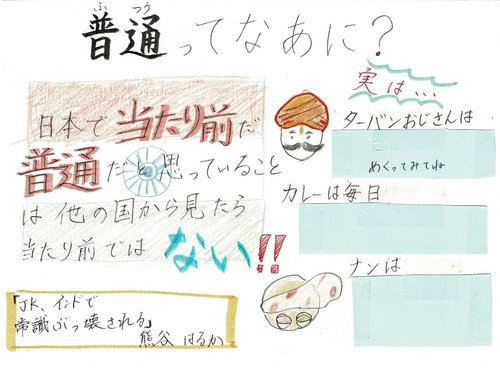 ふ つう
普通ってなあに？
日本で当たり前だ
普通だと思っていること
は他の国から見たら
当たり前では ない!!
「JK、インドで
常識ぶっ壊される」
熊谷 はるか
実は…
ターバンおじさんは
めくってみてね
カレーは毎日
ナンは